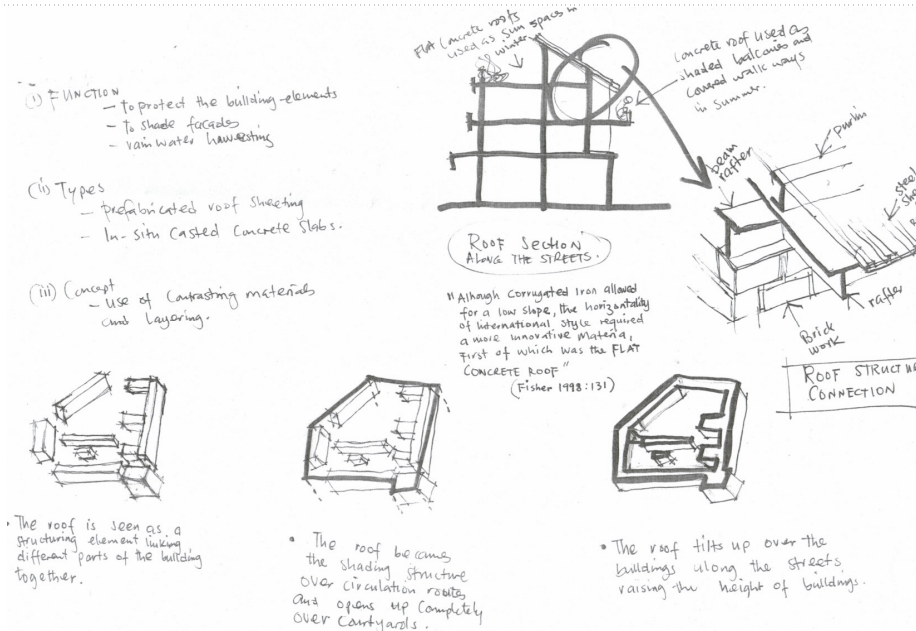 (i) FUNCTION
- to protect the building elements
- to shade facades
- rain water harvesting
(ii) Types
- prefabricated roof sheeting
- In-situ Casted Concrete Slabs.
(iii) Concept
- Use of Contrasting materials
and Layering.
FLAT Concrete roofs
used as sun spaces in
winter
Concrete roof used as
shaded balconies and
covered walk ways
in summer.
ROOF SECTION
ALONG THE STREETS.
"Alhough corrugated Iron allowed
for a low slope, the horizontality
of international style required
a more innovative materia,
first of which was the FLAT
CONCRETE ROOF"
(Fisher 1998:131)
beam
rafter
purlin
steel
rafter
Brick
work
ROOF STRUCTU
CONNECTION
• The roof is seen as a
structuring element linking
different parts of the building
together.
• The roof becomes
the shading structure
over circulation routes
and opens up completely
over courtyards.
• The roof tilts up over the
buildings along the streets
raising the height of buildings.